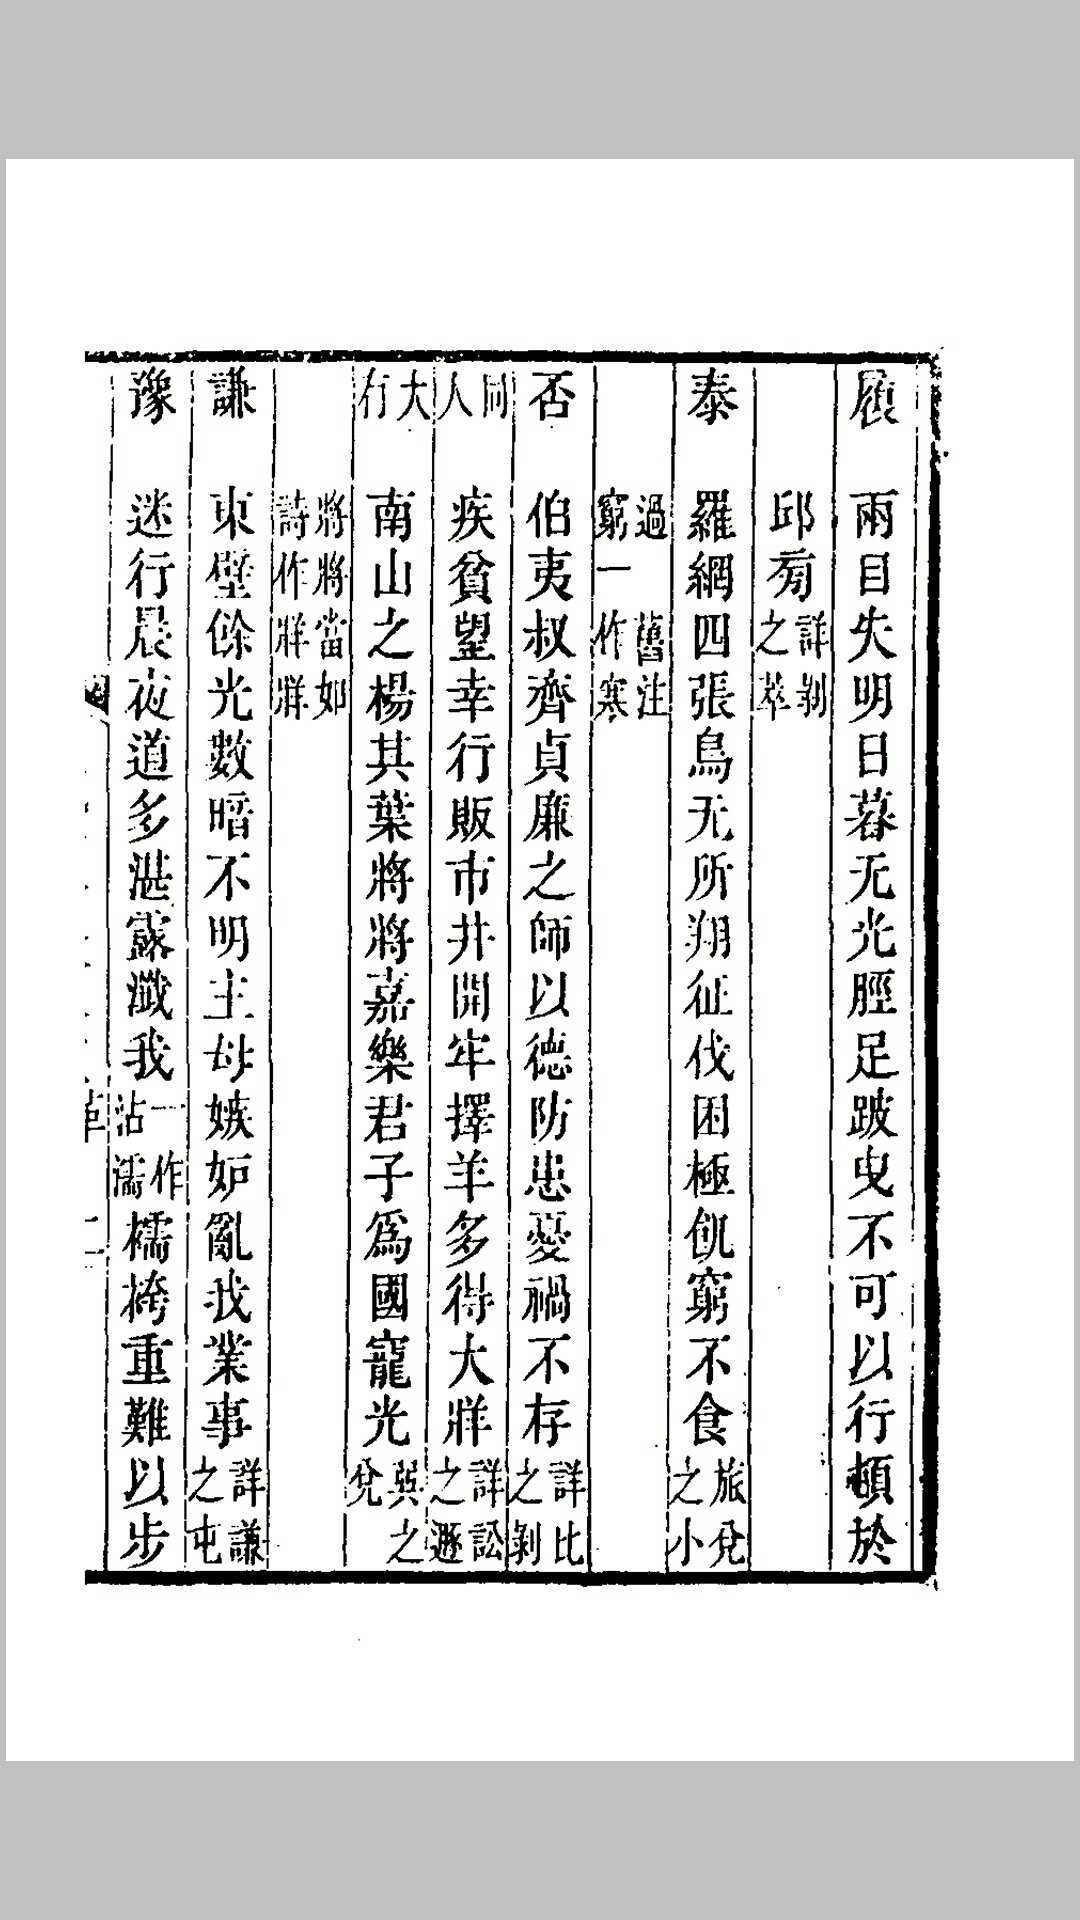 履　兩目失明日暮无光脛足跛曳不可以行頓於
邱旁詳剝之萃
泰　羅網四張鳥无所翔征伐困極飢窮不食旅兌之小
過　舊注窮一作寒
否　伯夷叔齊貞廉之師以德防患憂禍不存詳比之剝
同人　疾貧望幸行販市井開牢擇羊多得大牂詳訟之遯
大有　南山之楊其葉將將嘉樂君子爲國寵光巽之兌
將將當如詩作牂牂
謙　東壁餘光數暗不明主母嫉妒亂我業事詳謙之屯
豫　迷行晨夜道多湛露瀸我一作沾濡襦袴重難以步